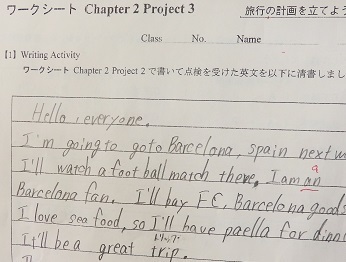 ワークシート Chapter 2 Project 3
旅行の計画を立てよう
Class No. Name
【1】Writing Activity
ワークシート Chapter 2 Project 2 で書いて点検を受けた英文を以下に清書しまし
Hello, everyone.
I'm going to go to Barcelona, spain next w
a
I'll watch a foot ball match there. I am an
Barcelona fan. I'll bay FC, Barcelona goods
I love sea food, so I'll have paella for dinn
トリップ
It'll be a great trip.